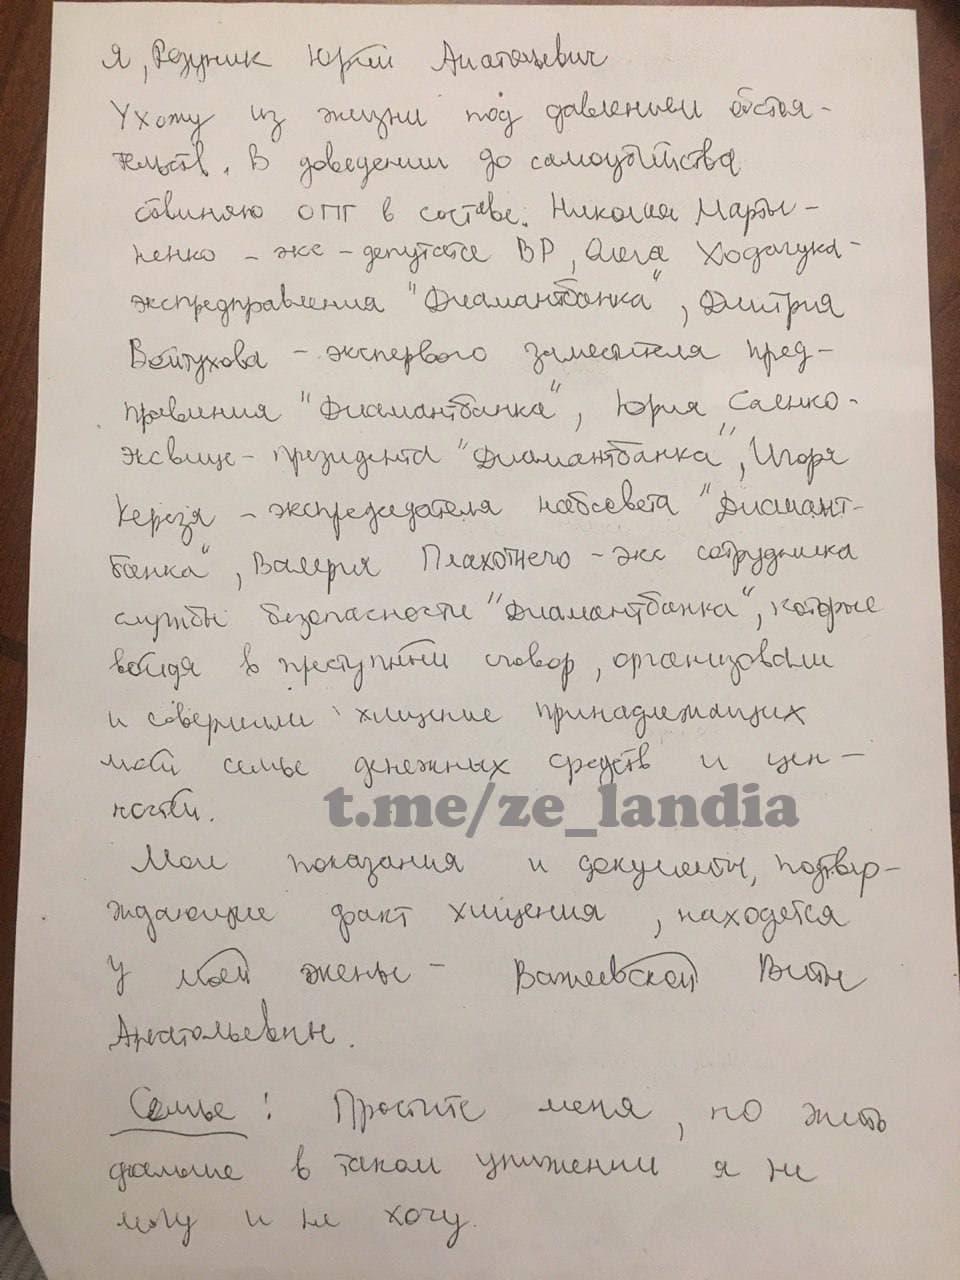 Я, Розуник Юрий Анатольевич
Ухожу из жизни под давлением обстоя-
тельств. В доведении до самоубийства
обвиняю ОПГ в составе: Николая Марты-
ненко - экс-депутата ВР, Олега Ходачука -
экспредправления "Диамантбанка", Дмитрия
Войтухова - экспервого заместителя пред-
правления "Диамантбанка", Юрия Саенко -
эксвице-президента "Диамантбанка", Игоря
Керезя - экспредседателя набсовета "Диамант-
банка", Валерия Плахотнего - экс сотрудника
службы безопасности "Диамантбанка", которые
войдя в преступный сговор, организовали
и совершили хищение принадлежащих
моей семье денежных средств и цен-
ностей.
t.me/ze_landia
Мои показания и документы, подтвер-
ждающие факт хищения, находятся
у моей жены -
Анатольевны.
Семье! Простите меня, но жить
дальше в таком унижении я не
могу и не хочу.